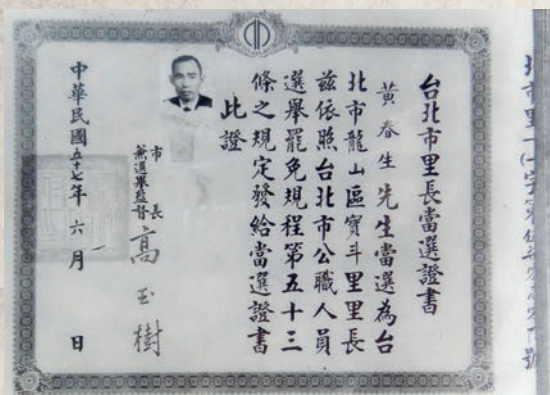 台北市里長當選證書
黃春生先生當選為台
北市龍山區寶斗里里長
茲依照台北市公職人員
選舉罷免規程第五十三
條之規定發給當選證書
此證
市長
兼選舉監督
高玉樹
中華民國五十七年六月 日